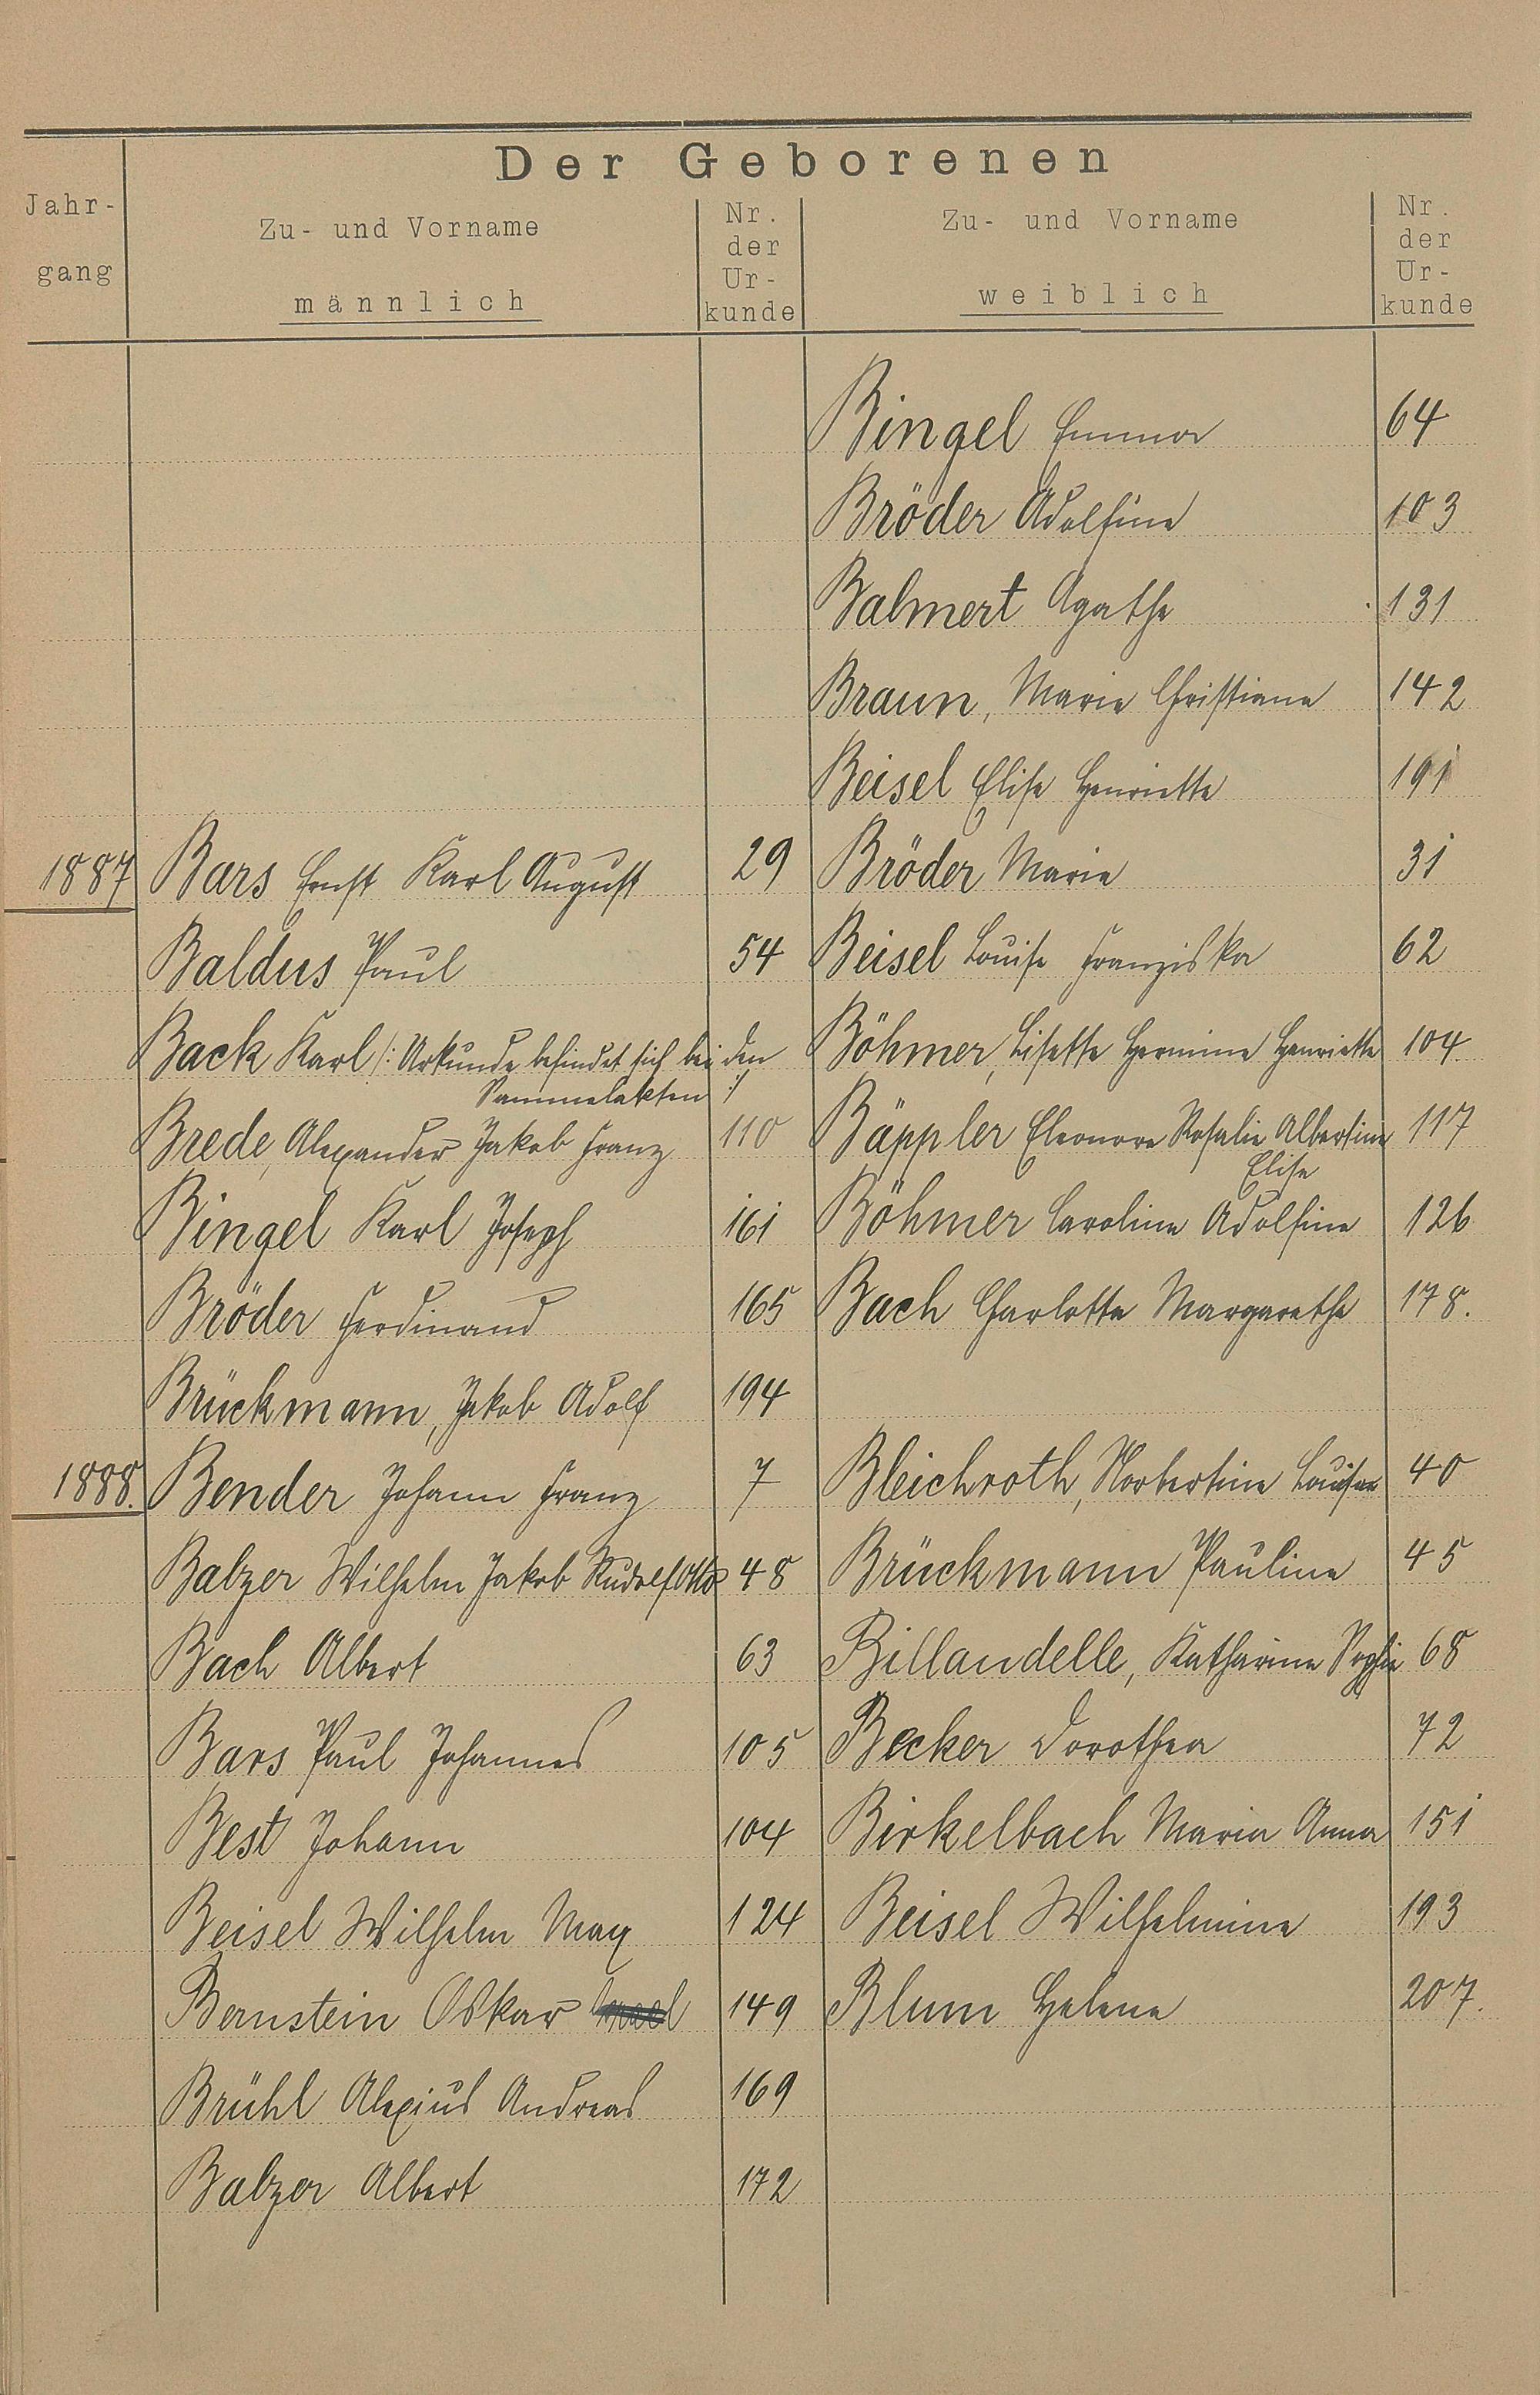 Der Geborenen
Jahr-
gang
Zu- und Vorname
männlich
Nr.
der
Ur-
kunde
Zu- und Vorname
weiblich
Nr.
der
Ur-
kunde
Bingel Emma 64
Bröder Adolfine 103
Balmert Agathe 131
Braun, Marie Christiane 142
Beisel Elise Henriette 191
1887 Bars Ernst Karl August 29 Bröder Marie 31
Baldus Paul 54 Beisel Louise Franziska 62
Back Karl /: Urkunde befindet sich bei den Böhmer, Lisette Hermine Henriette 104
Sammelakten :/
Brede, Alexander Jakob Franz 110 Bäppler Eleonore Rosalie Albertine 117
Elise
Bingel Karl Joseph 161 Böhmer Caroline Adolfine 126
Bröder Ferdinand 165 Bach Charlotte Margarethe 178.
Brückmann, Jakob Adolf 194
1888. Bender Johann Franz 7 Bleichroth, Norbertine Louise 40
Balzer Wilhelm Jakob Rudolf Otto 48 Brückmann Pauline 45
Bach Albert 63 Billandelle, Katharine Sophie 68
Bars Paul Johannes 105 Becker Dorothea 72
Best Johann 104 Birkelbach Maria Anna 151
Beisel Wilhelm Max 124 Beisel Wilhelmine 193
Bernstein Oskar Israel 149 Blum Helene 207.
Brühl Alexius Andreas 169
Balzer Albert 172